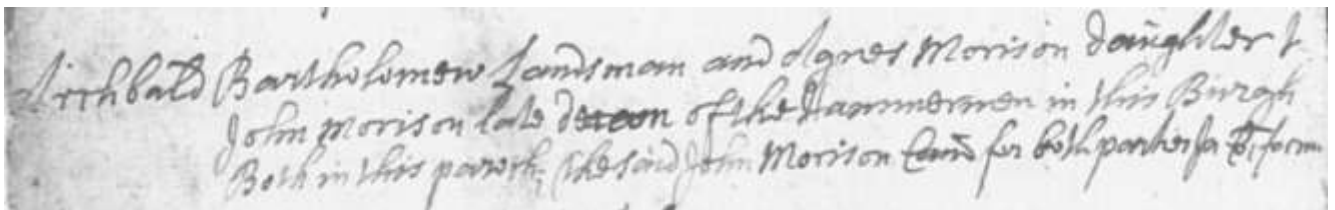 Archbald Bartholomew Landsman and Agnes Morison daughter t
John Morison late deacon of the Hammermen in this Burgh
Both in this parosh, the said John Morison for both parties